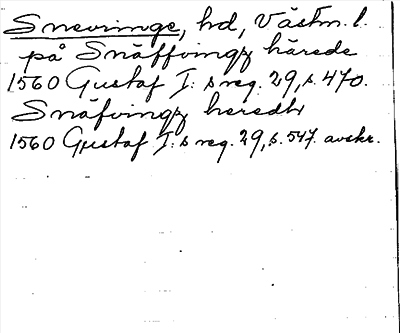 Snevringe, hd, Västm. l.
på Snäffvingz härede
1560 Gustaf I:s reg. 29, s. 470.
Snäfvingz heredh
1560 Gustaf I:s reg. 29, s. 547. avskr.